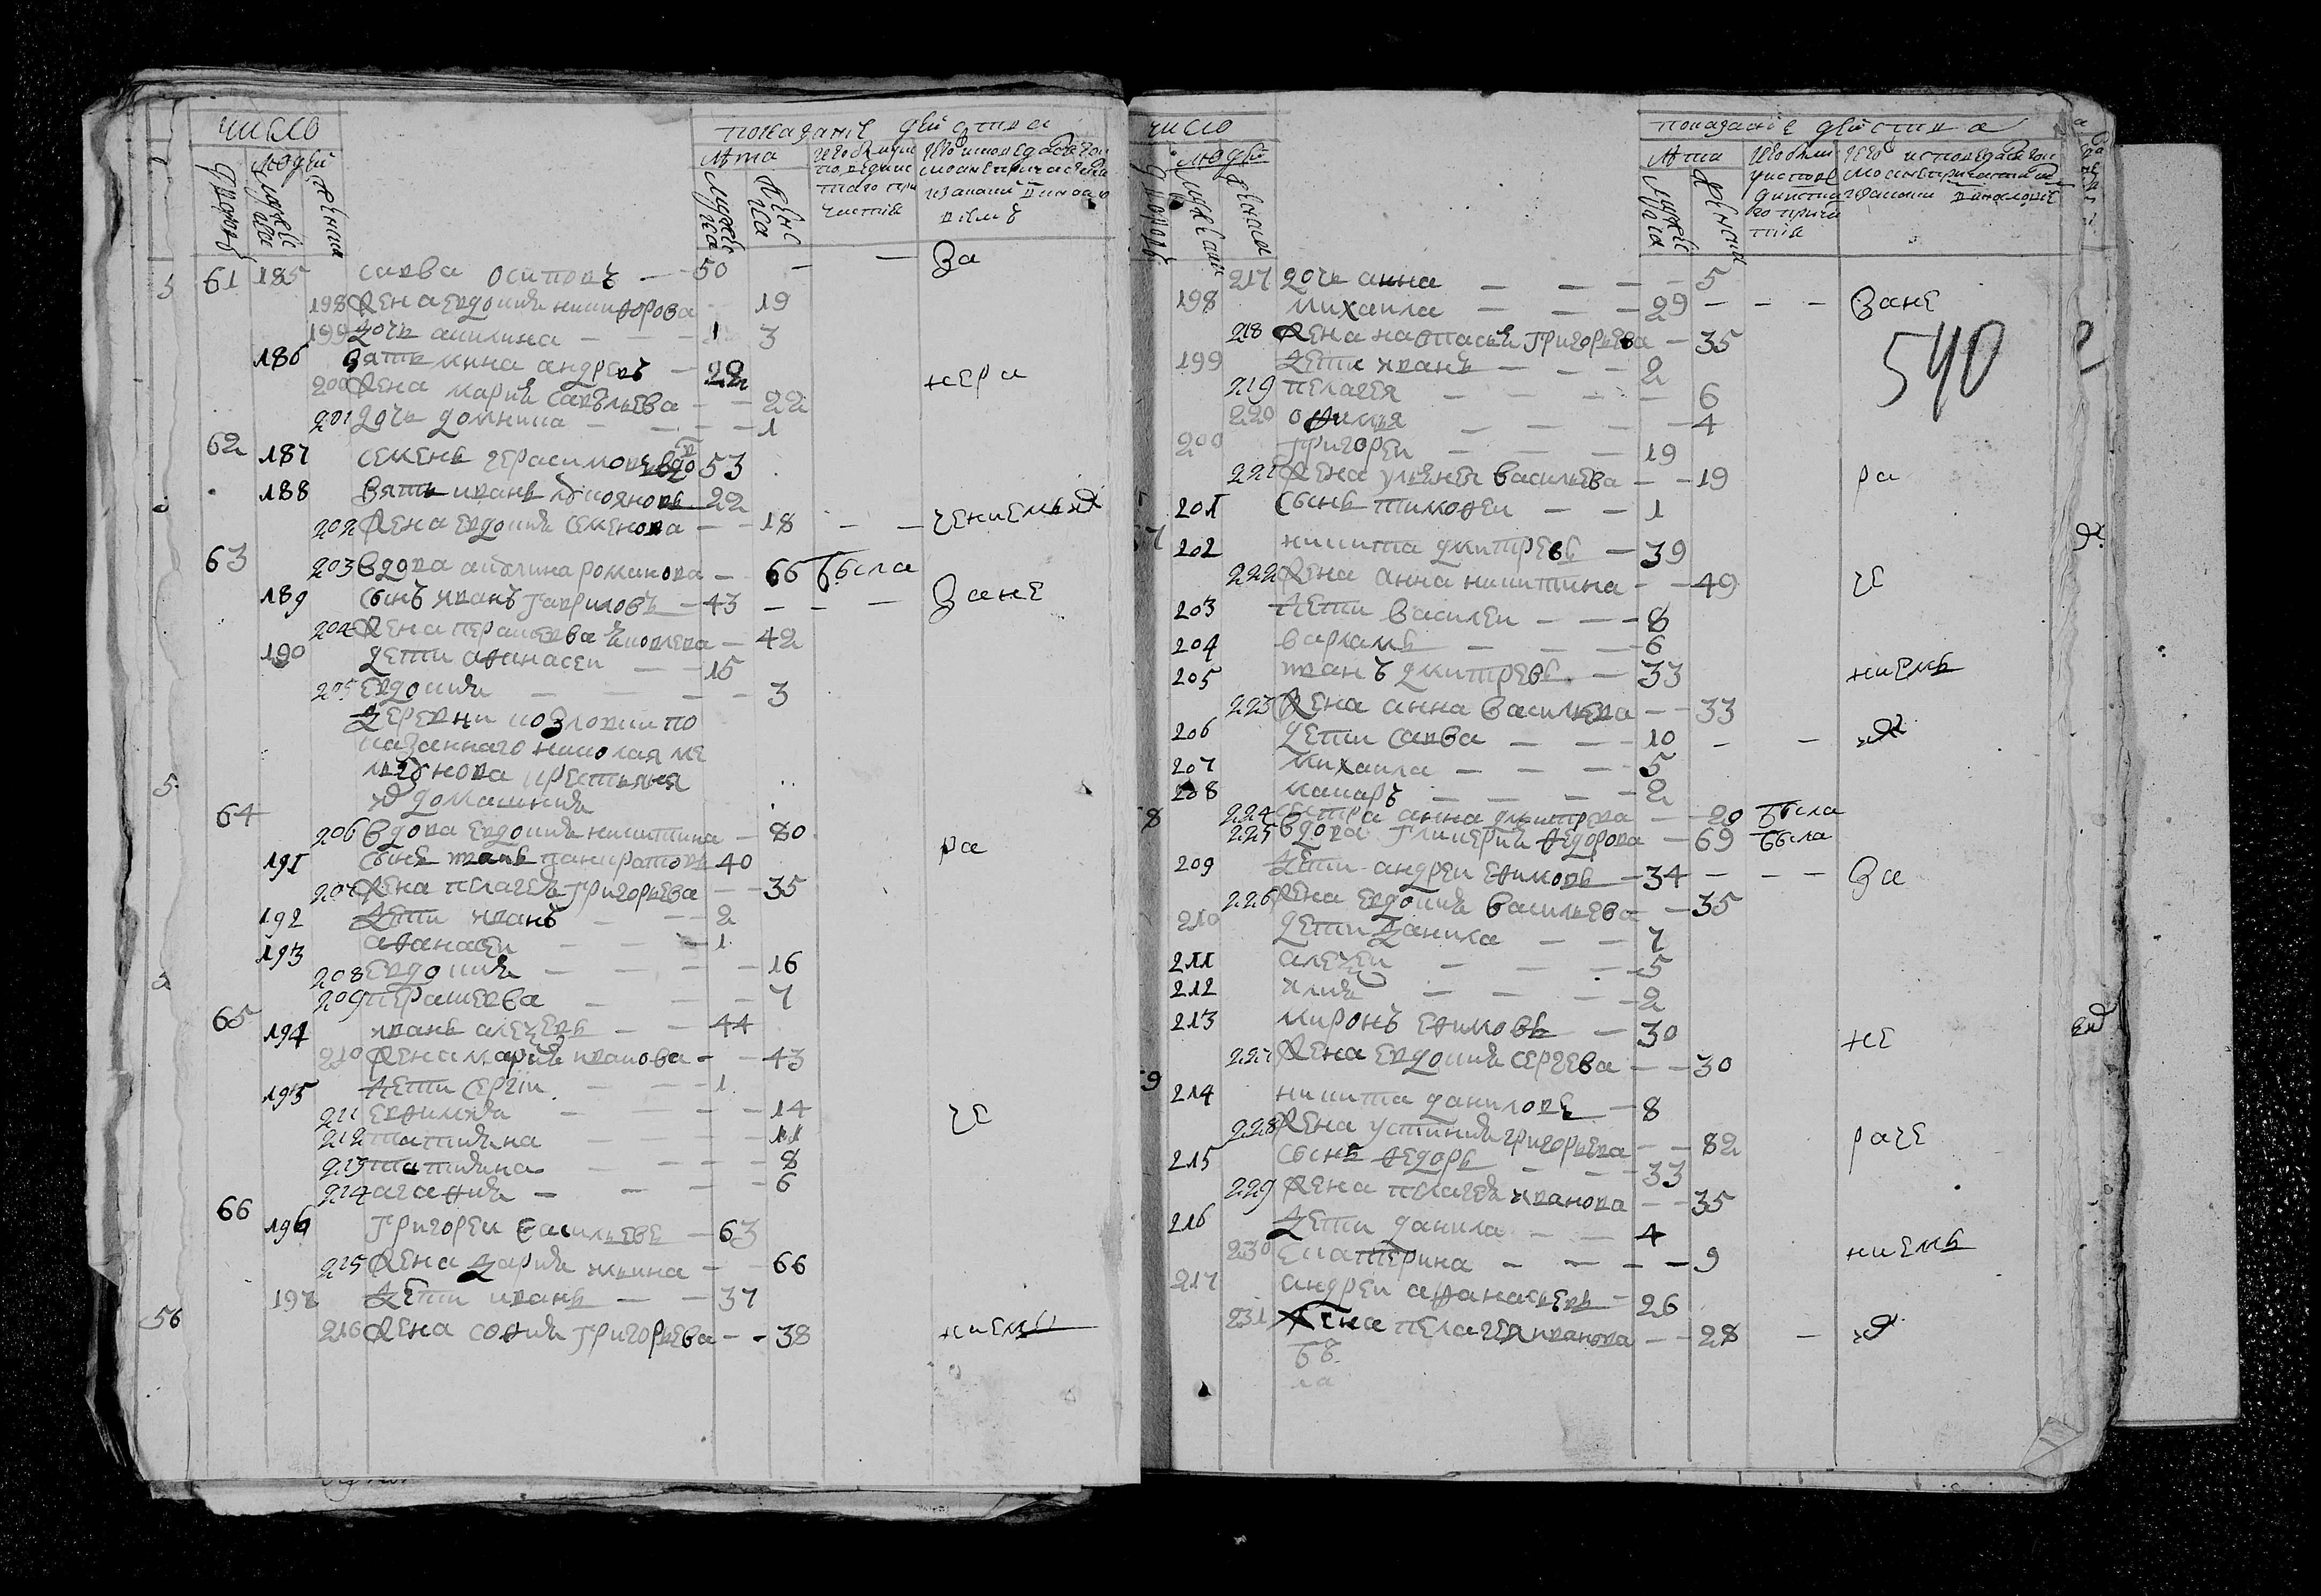 число
показание действа
людей
лета
дворовъ
мужеска
женска
мужеска
женска
61 185 савва осиповъ 50 За
198 жена евдокия никифорова 19
199 дочь акилина 3
186 зять мина андреевъ 22
200 жена мария савельева 22 нера
201 дочь домника 1
62 187 семенъ герасимовъ вдо 53
188 зять иванъ 22
202 жена евдокия семенова 18 чениемъ
63 203 вдова акулина романова 66 была
189 сынъ иванъ гавриловъ 43 Зане
204 жена парасковья яковлева 42
190 дети афанасеи 15
205 евдокия 3
деревни козловки по
казаннаго николая ме
крестьяня
и домашния
64
206 вдова евдокия никитина 80
191 сынъ иванъ панкратовъ 40 ра
207 жена пелагея григорьева 35
192 дети иванъ 2
193 афанасеи 1
208 евдокия 16
209 перасковья 7
65 194 иванъ алексеевъ 44
210 жена мария иванова 43
195 дети сергеи 1
211 евфимия 14
212 татияна 11 че
213 татияна 8
214 агафия 6
66 196 григореи васильевъ 63
215 жена дария ильина 66
197 дети иванъ 37
56
216 жена софия григорьева 38 ниемъ
число
показание действа
людеи
лета
мужеска
женска
мужеска
женска
217 дочь анна 5
198 михаила 29 Зане
218 жена настасия григорьева 35
540
199 дети иванъ 2
219 пелагея 6
220 офимия 4
200 григореи 19
221 жена улияния васильева 19 ра
201 сынъ тимофеи 1
202 никита дмитревъ 39
222 жена анна никитина 49 че
203 дети василеи 8
204 варламъ 6
205 иванъ дмитревъ 33 ниемъ
223 жена анна васильева 33
206 дети савва 10
207 михаила 5
208 макаръ 2
224 сестра анна дмитрева 20 была
225 вдова гликерия федорова 69 была
209 дети андреи ефимовъ 34 За
226 жена евдокия васильева 35
210 дети данила 7
211 алексеи 5
212 илия 2
213 миронъ ефимовъ 30 не
227 жена евдокия сергеева 30
214 никита даниловъ 8
228 жена устиния григорьева 82 раче
215 сынъ федоръ 33
229 жена пелагея иванова 35
216 дети данила 4
230 екатерина 9 ниемъ
217 андреи афанасьевъ 26
231 жена пелагея иванова 28